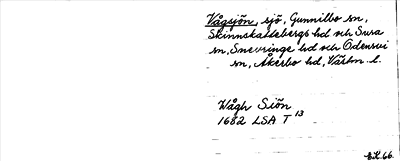 Vågsjön, sjö, Gunnilbo sn,
Skinnskattebergs hd och Sura
sn, Snevringe hd och Odensvi
sn, Åkerbo hd, Västm. l.
Wågh Siön
1682 LSA T 13
E.K. 66.